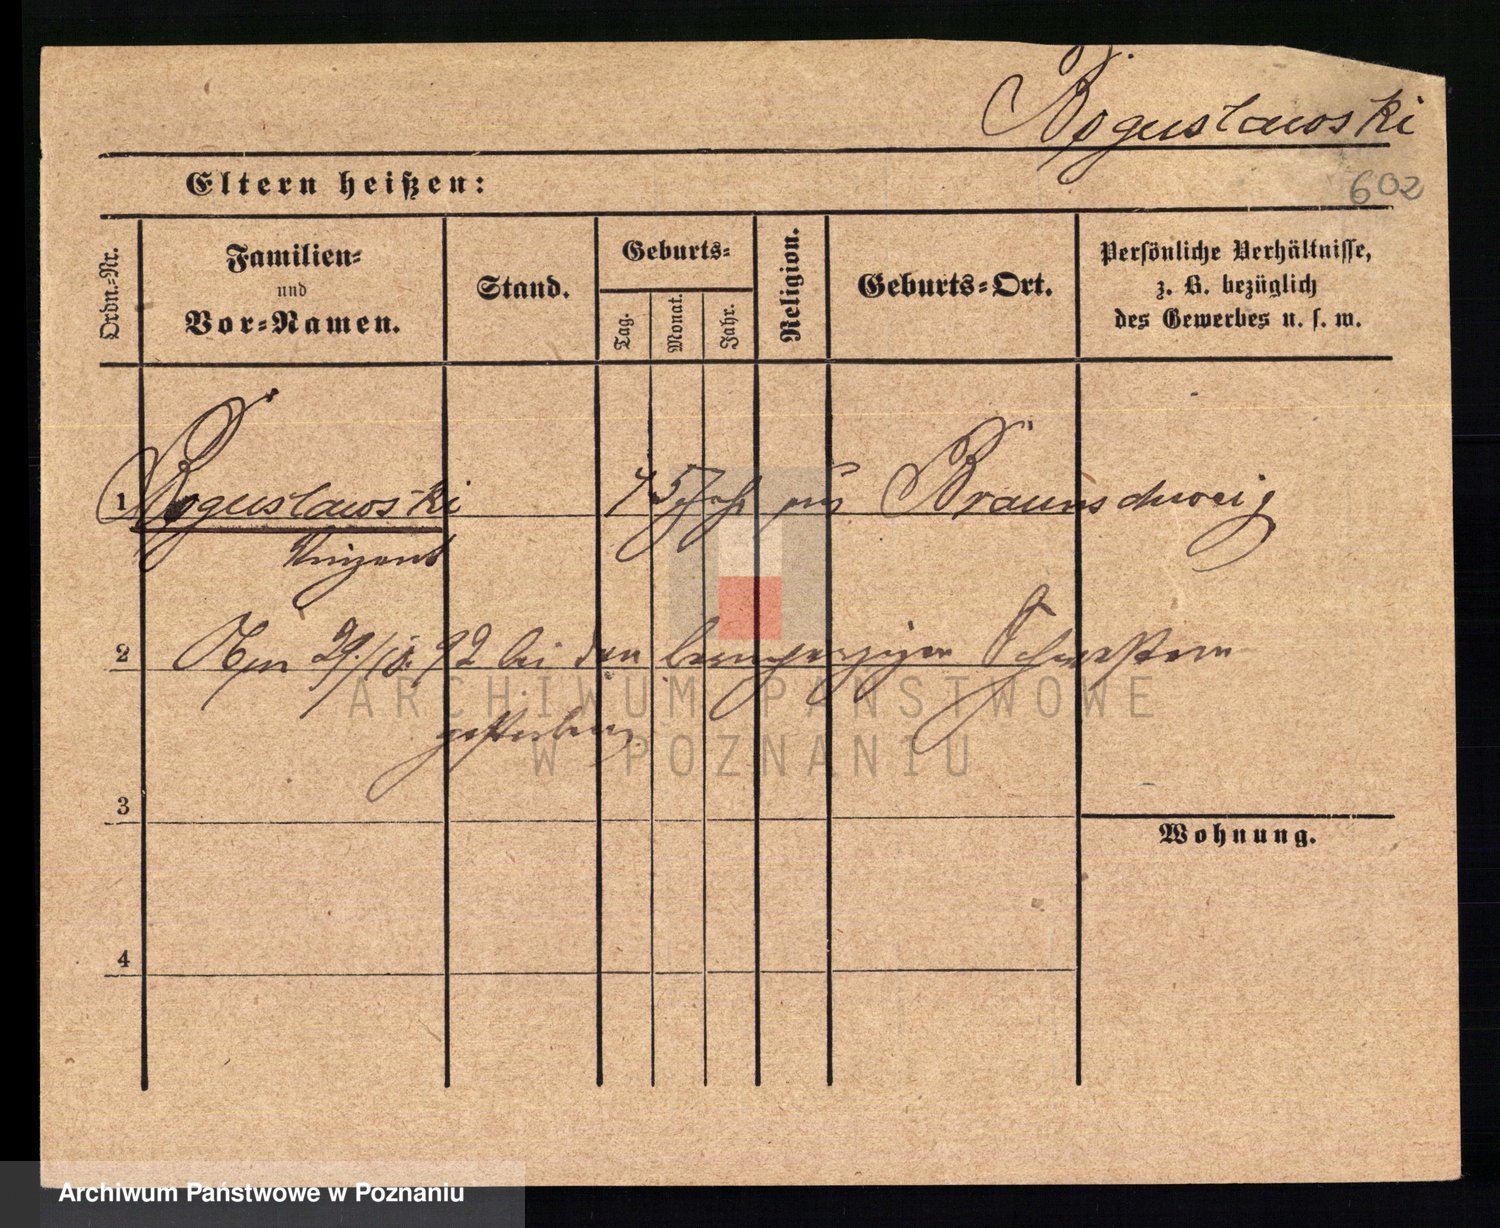 Boguslawski
602
Eltern heißen:
Ordn.-Nr.
Familien-
und
Vor-Namen.
Stand.
Geburts-
Tag.
Monat.
Jahr.
Religion.
Geburts-Ort.
Persönliche Verhältnisse,
z. B. bezüglich
des Gewerbes u. s. w.
1 Boguslawski 45 Jahr aus Braunschweig
Vinzent
2 Am 29./10. 92 bei den barmherzigen Schwestern
gestorben.
3
Wohnung.
4
ARCHIWUM PAŃSTWOWE
W POZNANIU
Archiwum Państwowe w Poznaniu